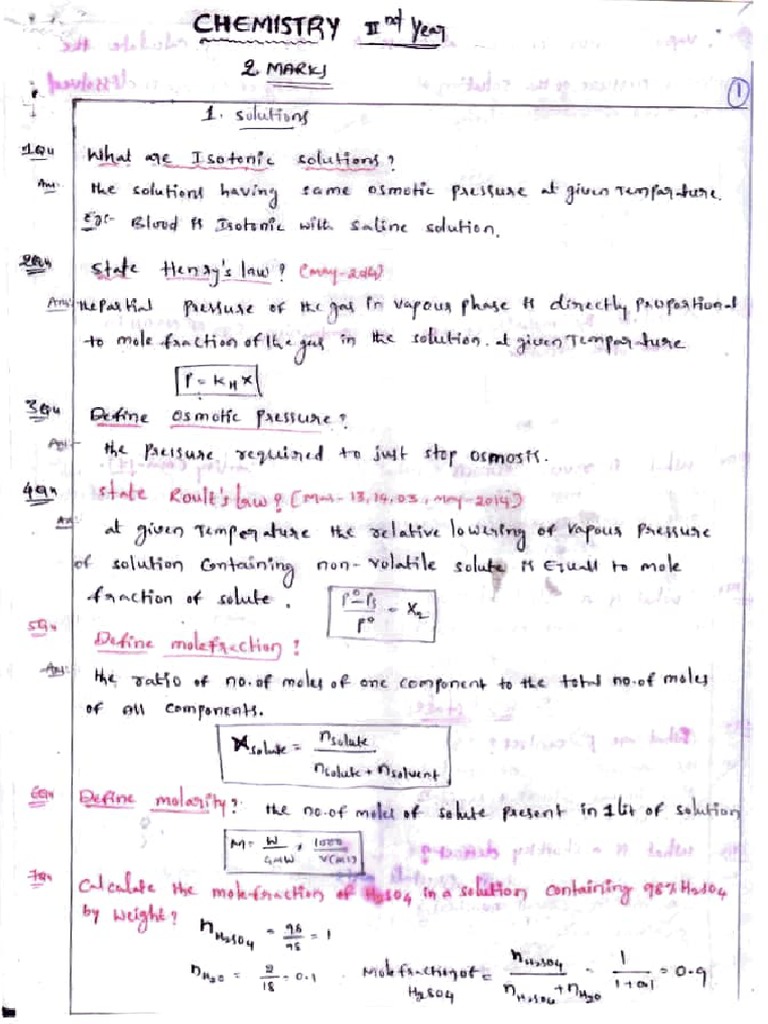 CHEMISTRY IInd Year
2 MARKS
1
1. solutions
1Qu What are Isotonic solutions?
Ans: the solutions having same osmotic pressure at given Temparature.
Ex:- Blood is Isotonic with saline solution.
2Qu State Henry's law? (may-2014)
Ans: the Partial pressure of the gas in vapour phase is directly proportional
to mole fraction of the gas in the solution. at given Temparature
P = KH X
3Qu Define osmotic pressure?
Ans: the pressure required to just stop osmosis.
4Qu State Roult's law? (Mar-13,14,03, May-2014)
Ans: at given Temperature the relative lowering of vapour pressure
of solution containing non-volatile solute is Equall to mole
fraction of solute. P°-Ps/P° = X2
5Qu Define molefraction?
Ans: the ratio of no.of moles of one component to the total no.of moles
of All components.
Xsolute = nsolute / nsolute + nsolvent
6Qu Define molarity? the no.of moles of solute present in 1 lit of solution
M = W/GMW × 1000/V(ml)
7Qu Calculate the mole-fraction of H2SO4 in a solution containing 98% H2SO4
by weight?
nH2SO4 = 98/98 = 1
nH2O = 2/18 = 0.1 Mole fraction of H2SO4 = nH2SO4 / nH2SO4 + nH2O = 1 / 1+0.1 = 0.9